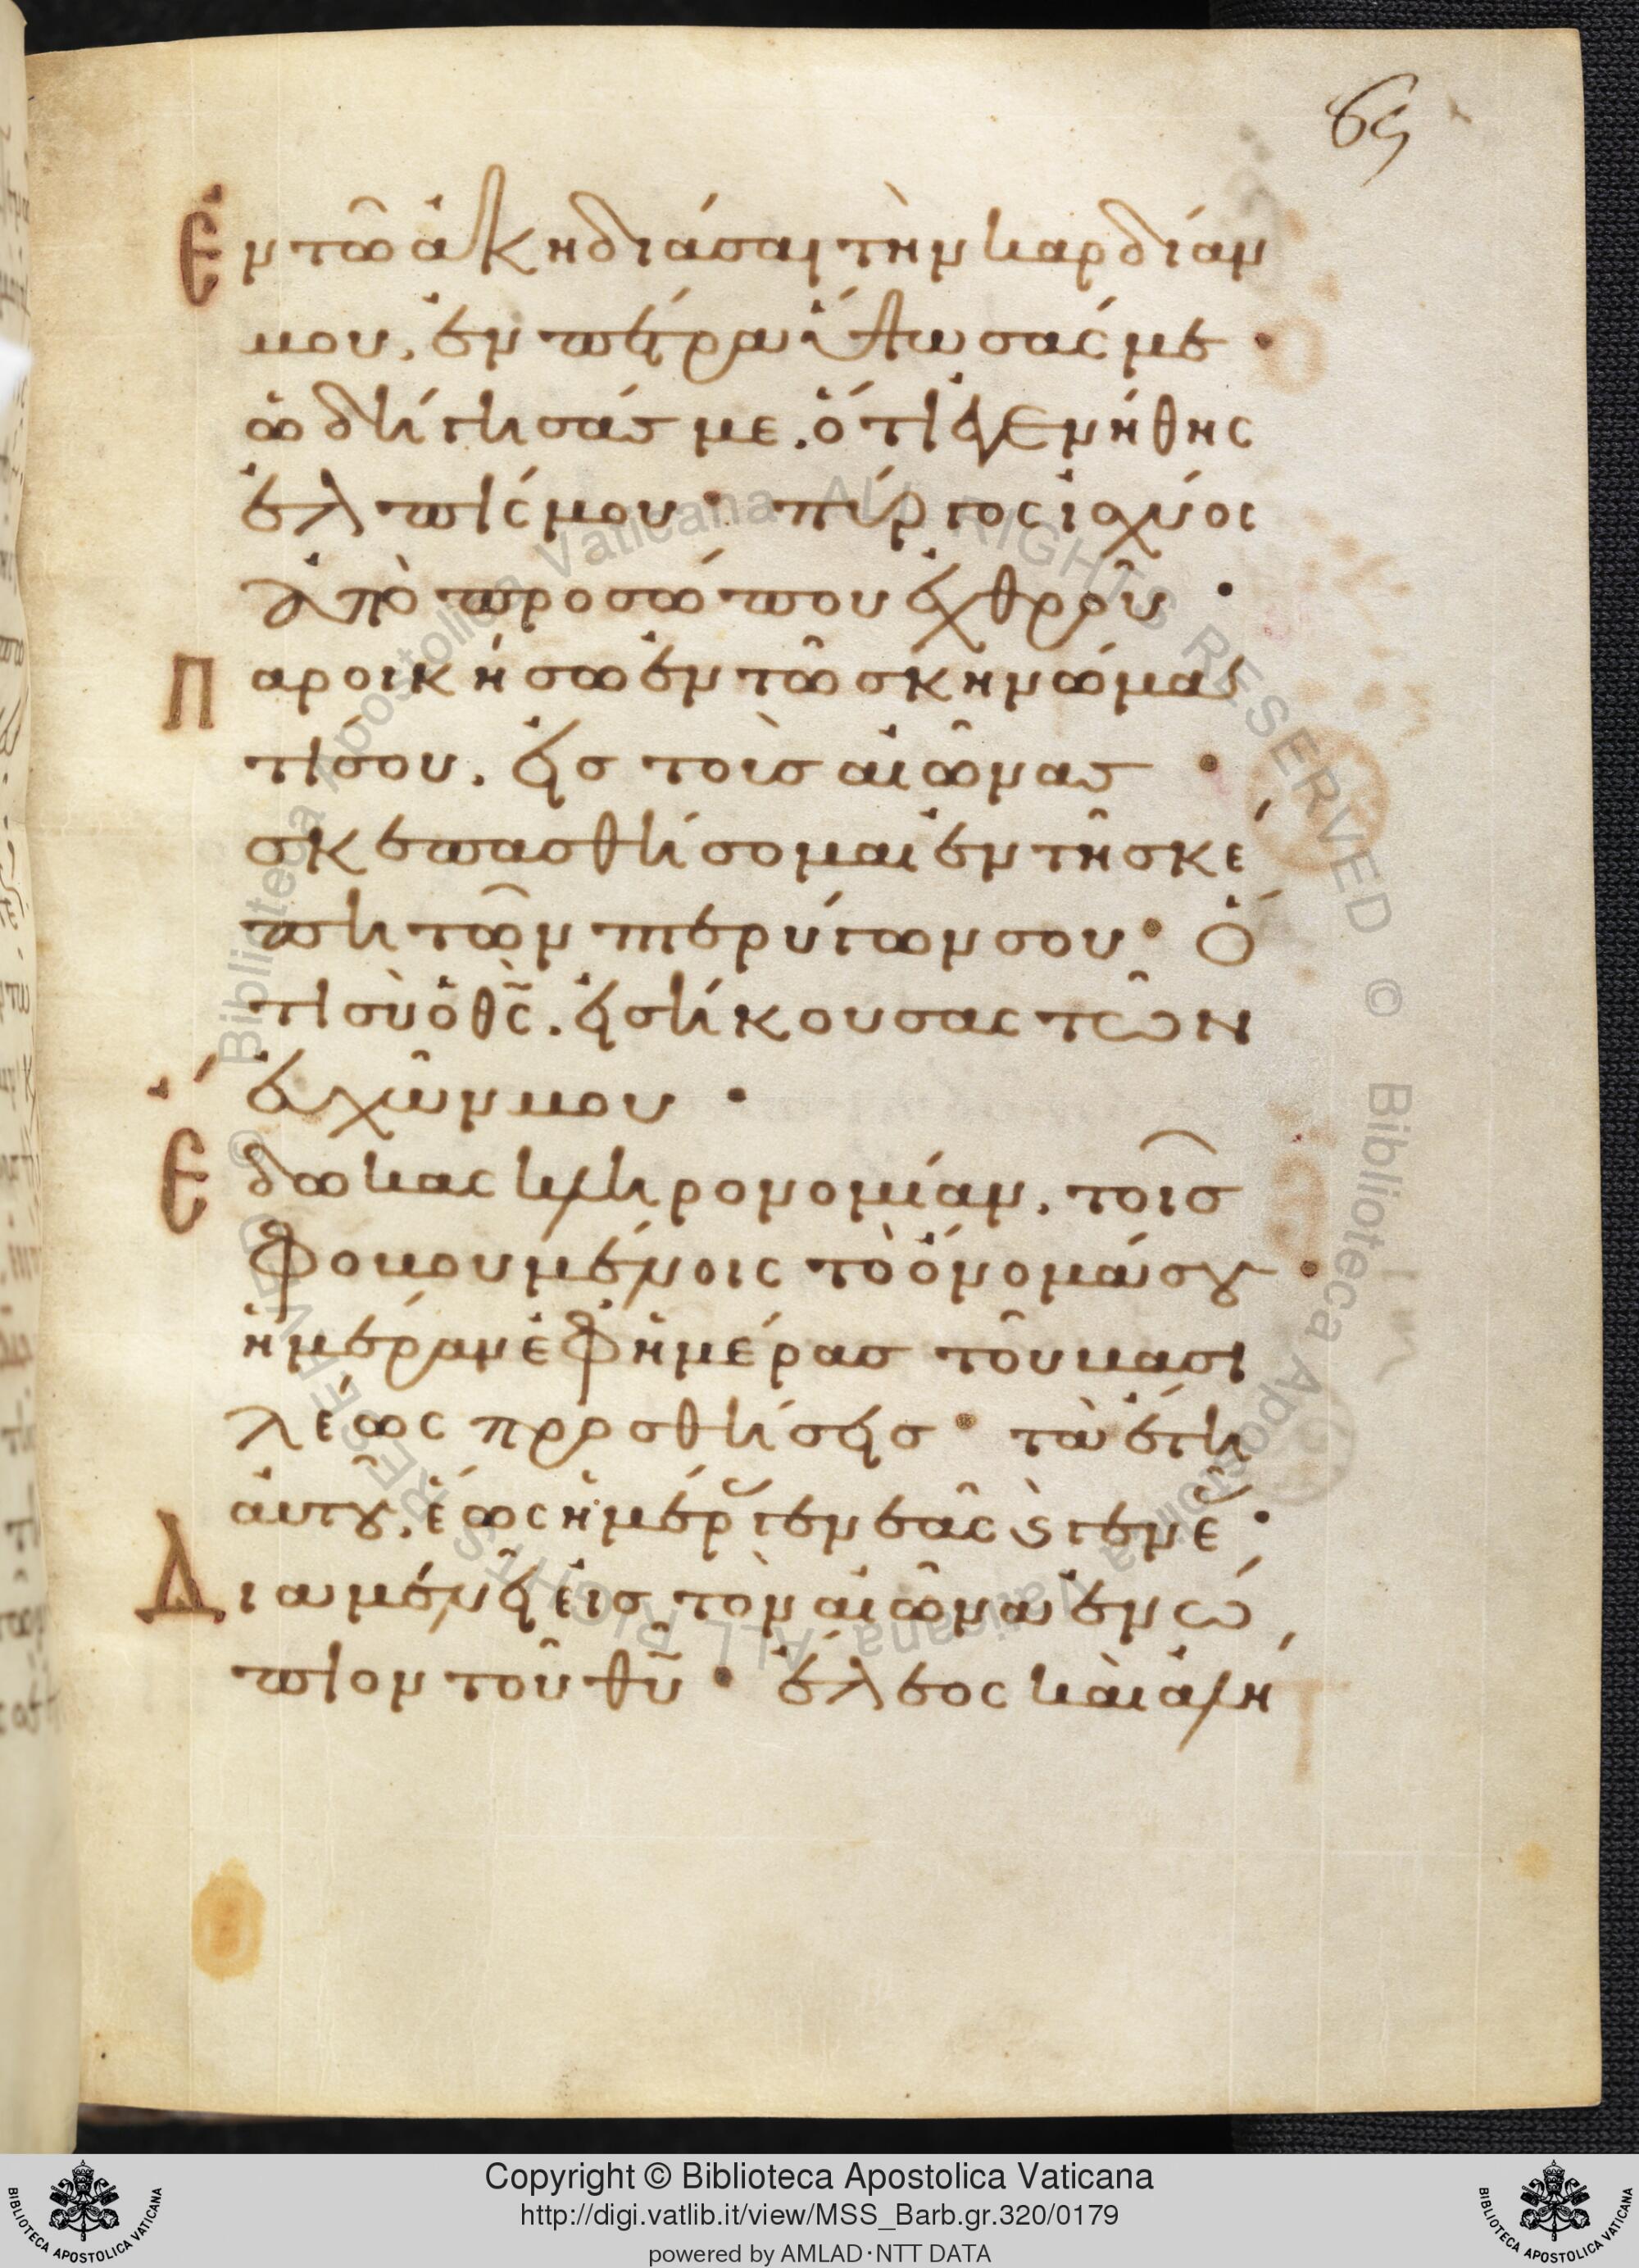 69
Ἐν τῶ ἀκηδιάσαι τὴν καρδίαν
μου, ἐν πέτρα ὕψωσάς με·
ὡδήγησάς με. ὅτι ἐγενήθης
ἐλπίς μου· πύργος ἰσχύος
ἀπὸ προσώπου ἐχθροῦ·
Παροικήσω ἐν τῶ σκηνώμα
τί σου. εἰς τοὺς αἰῶνας·
σκεπασθήσομαι ἐν τῆ σκέ
πη τῶν πτερύγων σου· Ὅ
τι σὺ ὁ θς̃. εἰσήκουσας τῶν
εὐχῶν μου·
Ἔδωκας κληρονομίαν. τοῖς
φοβουμένοις τὸ ὄνομά σου·
ἡμέραν ἐφ ἡμέρας τοῦ βασι
λέως προσθήσεις· τὰ ἔτη
αὐτοῦ. ἕως ἡμέρ γενεᾶς ϗ γενε·
Διαμένει εἰς τὸν αἰῶνα ἐνώ
πιον τοῦ θυ̃· ἔλεος καὶ ἀλή
Copyright © Biblioteca Apostolica Vaticana
http://digi.vatlib.it/view/MSS_Barb.gr.320/0179
powered by AMLAD·NTT DATA